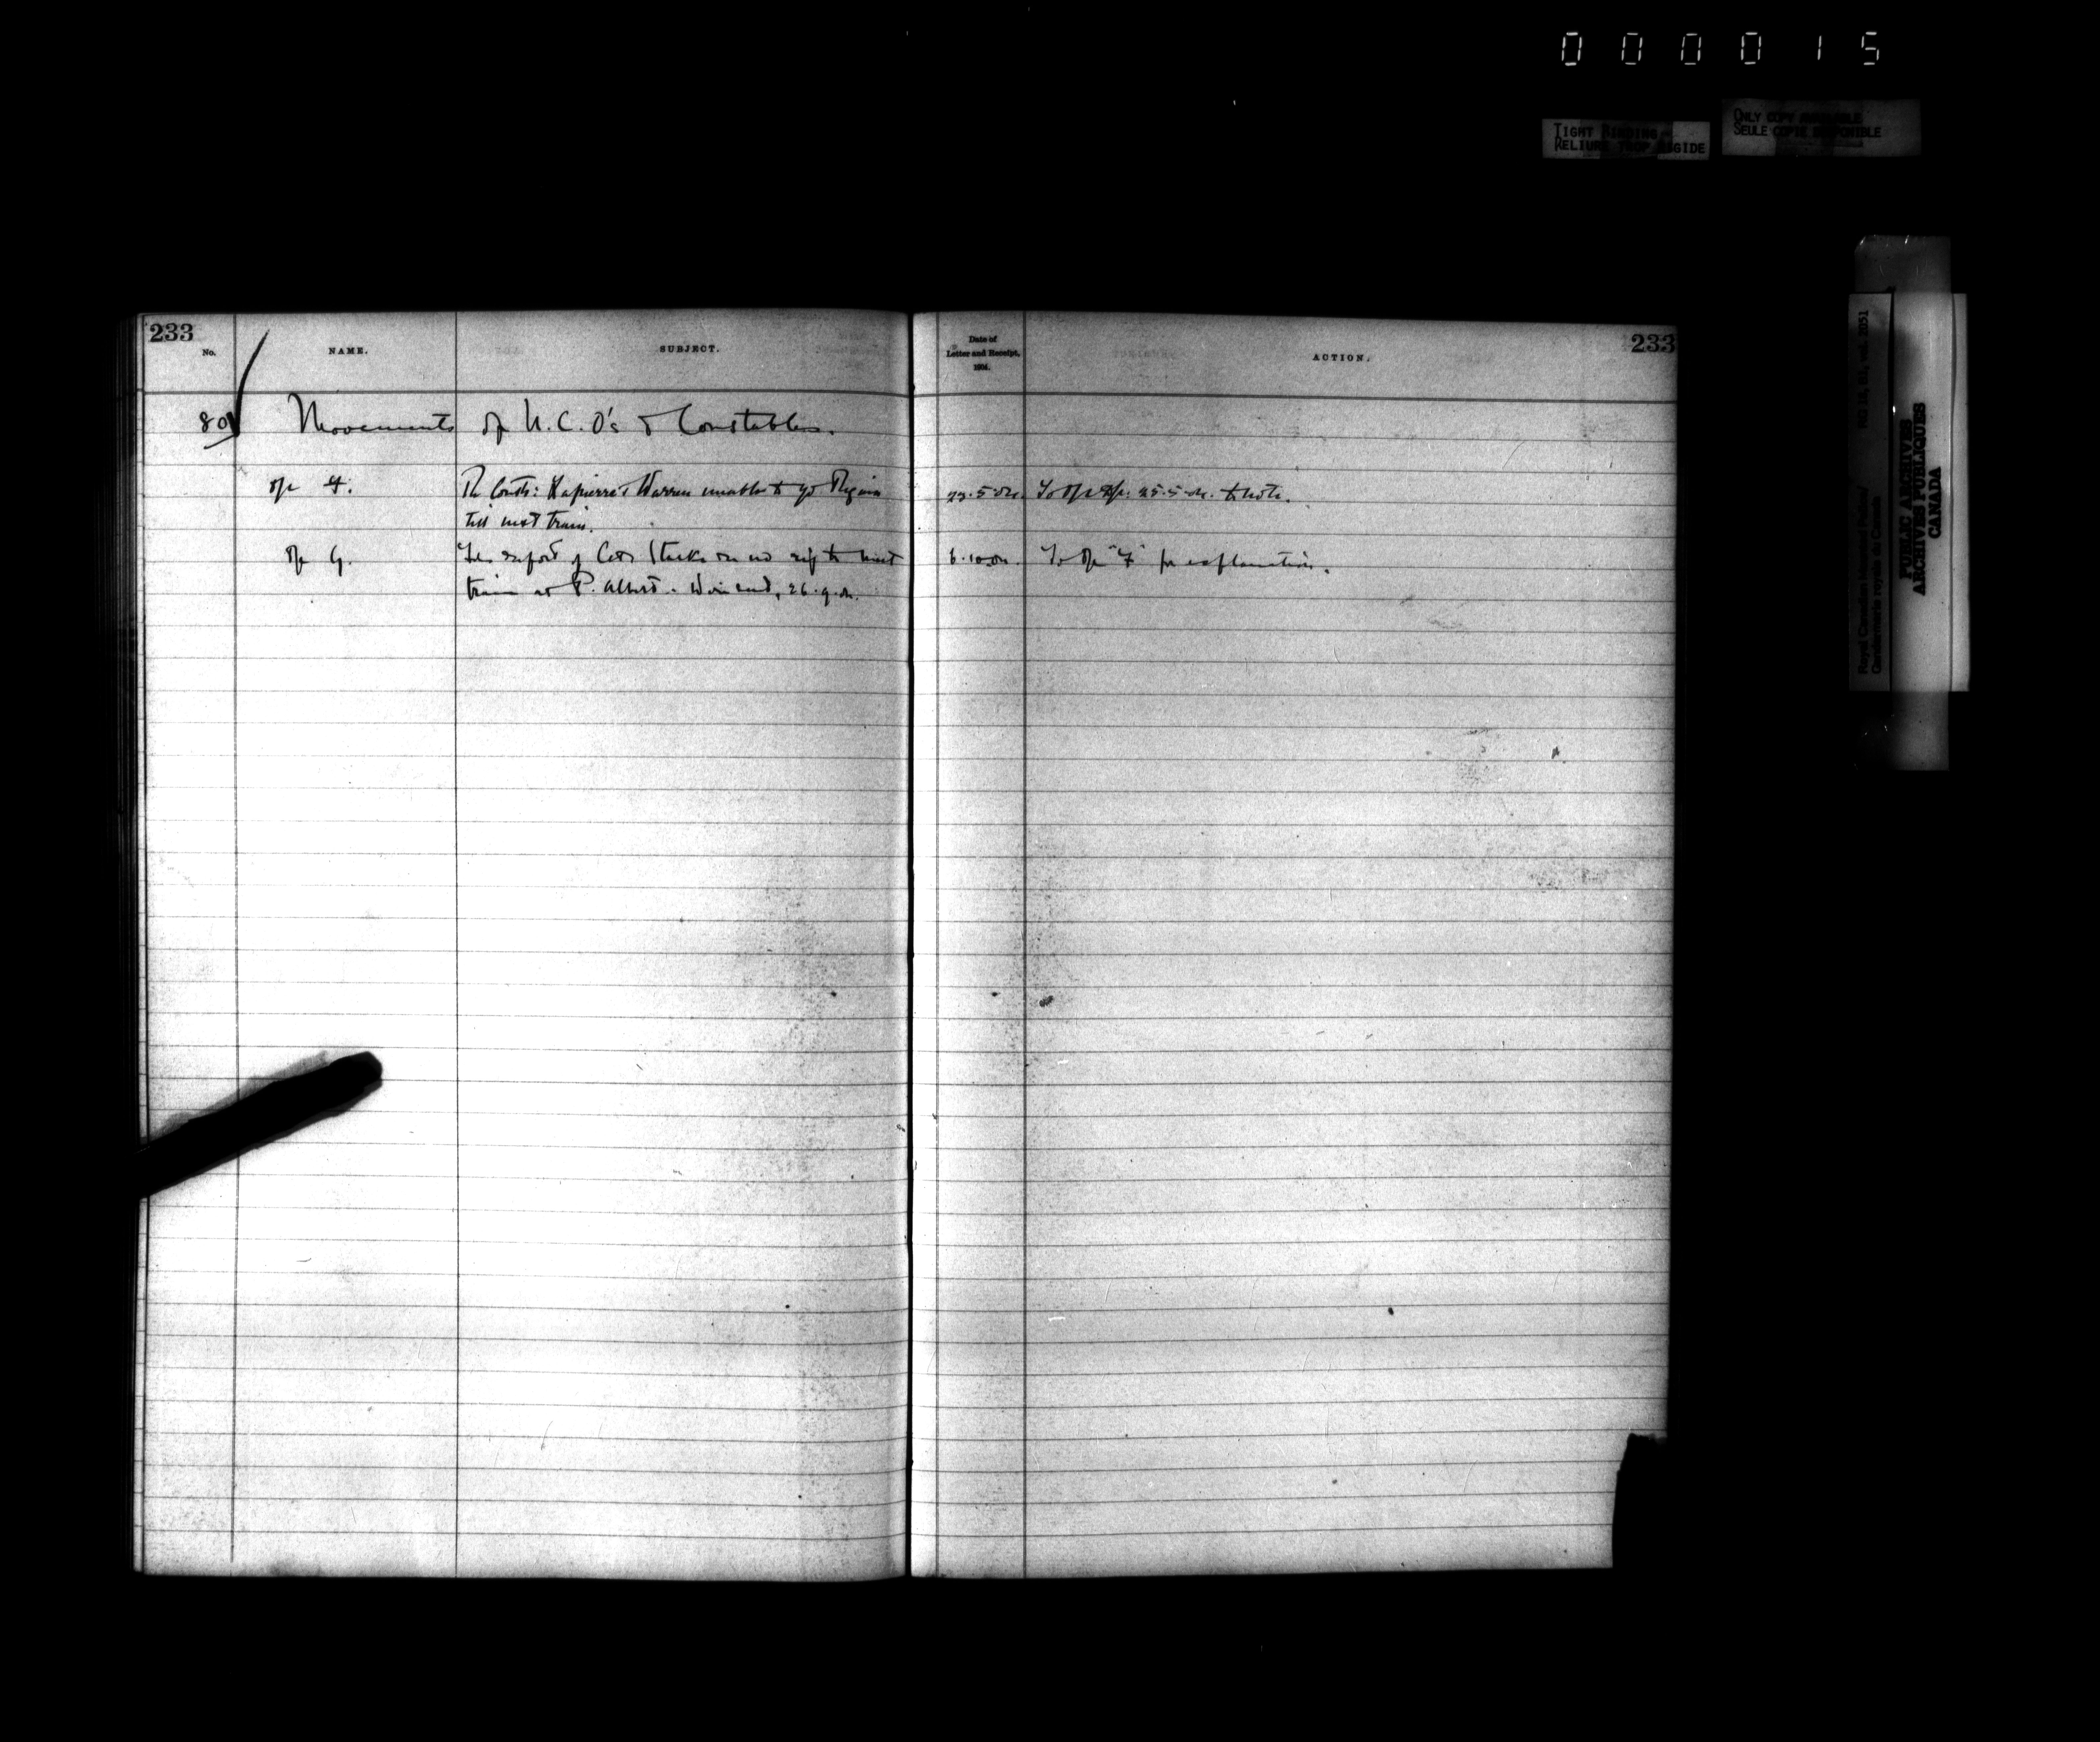 0 0 0 0 1 5
TIGHT BINDING
RELIURE TROP RIGIDE
ONLY COPY AVAILABLE
SEULE COPIE DISPONIBLE
233
No.
NAME.
SUBJECT.
Date of
Letter and Receipt,
1904.
ACTION.
233
80
Movements of N.C.O's & Constables.
Re Consts: Lapierre & Warren unable to go Regina
till next train.
22.5.04. 25.5.04. to note.
G.
report of on no rig to meet
train at P. Albert. 26.9.04.
6.10.04. To "F" for explanation.
Royal Canadian Mounted Police/
Gendarmerie royale du Canada
RG 18, B1, vol. 2051
PUBLIC ARCHIVES
ARCHIVES PUBLIQUES
CANADA